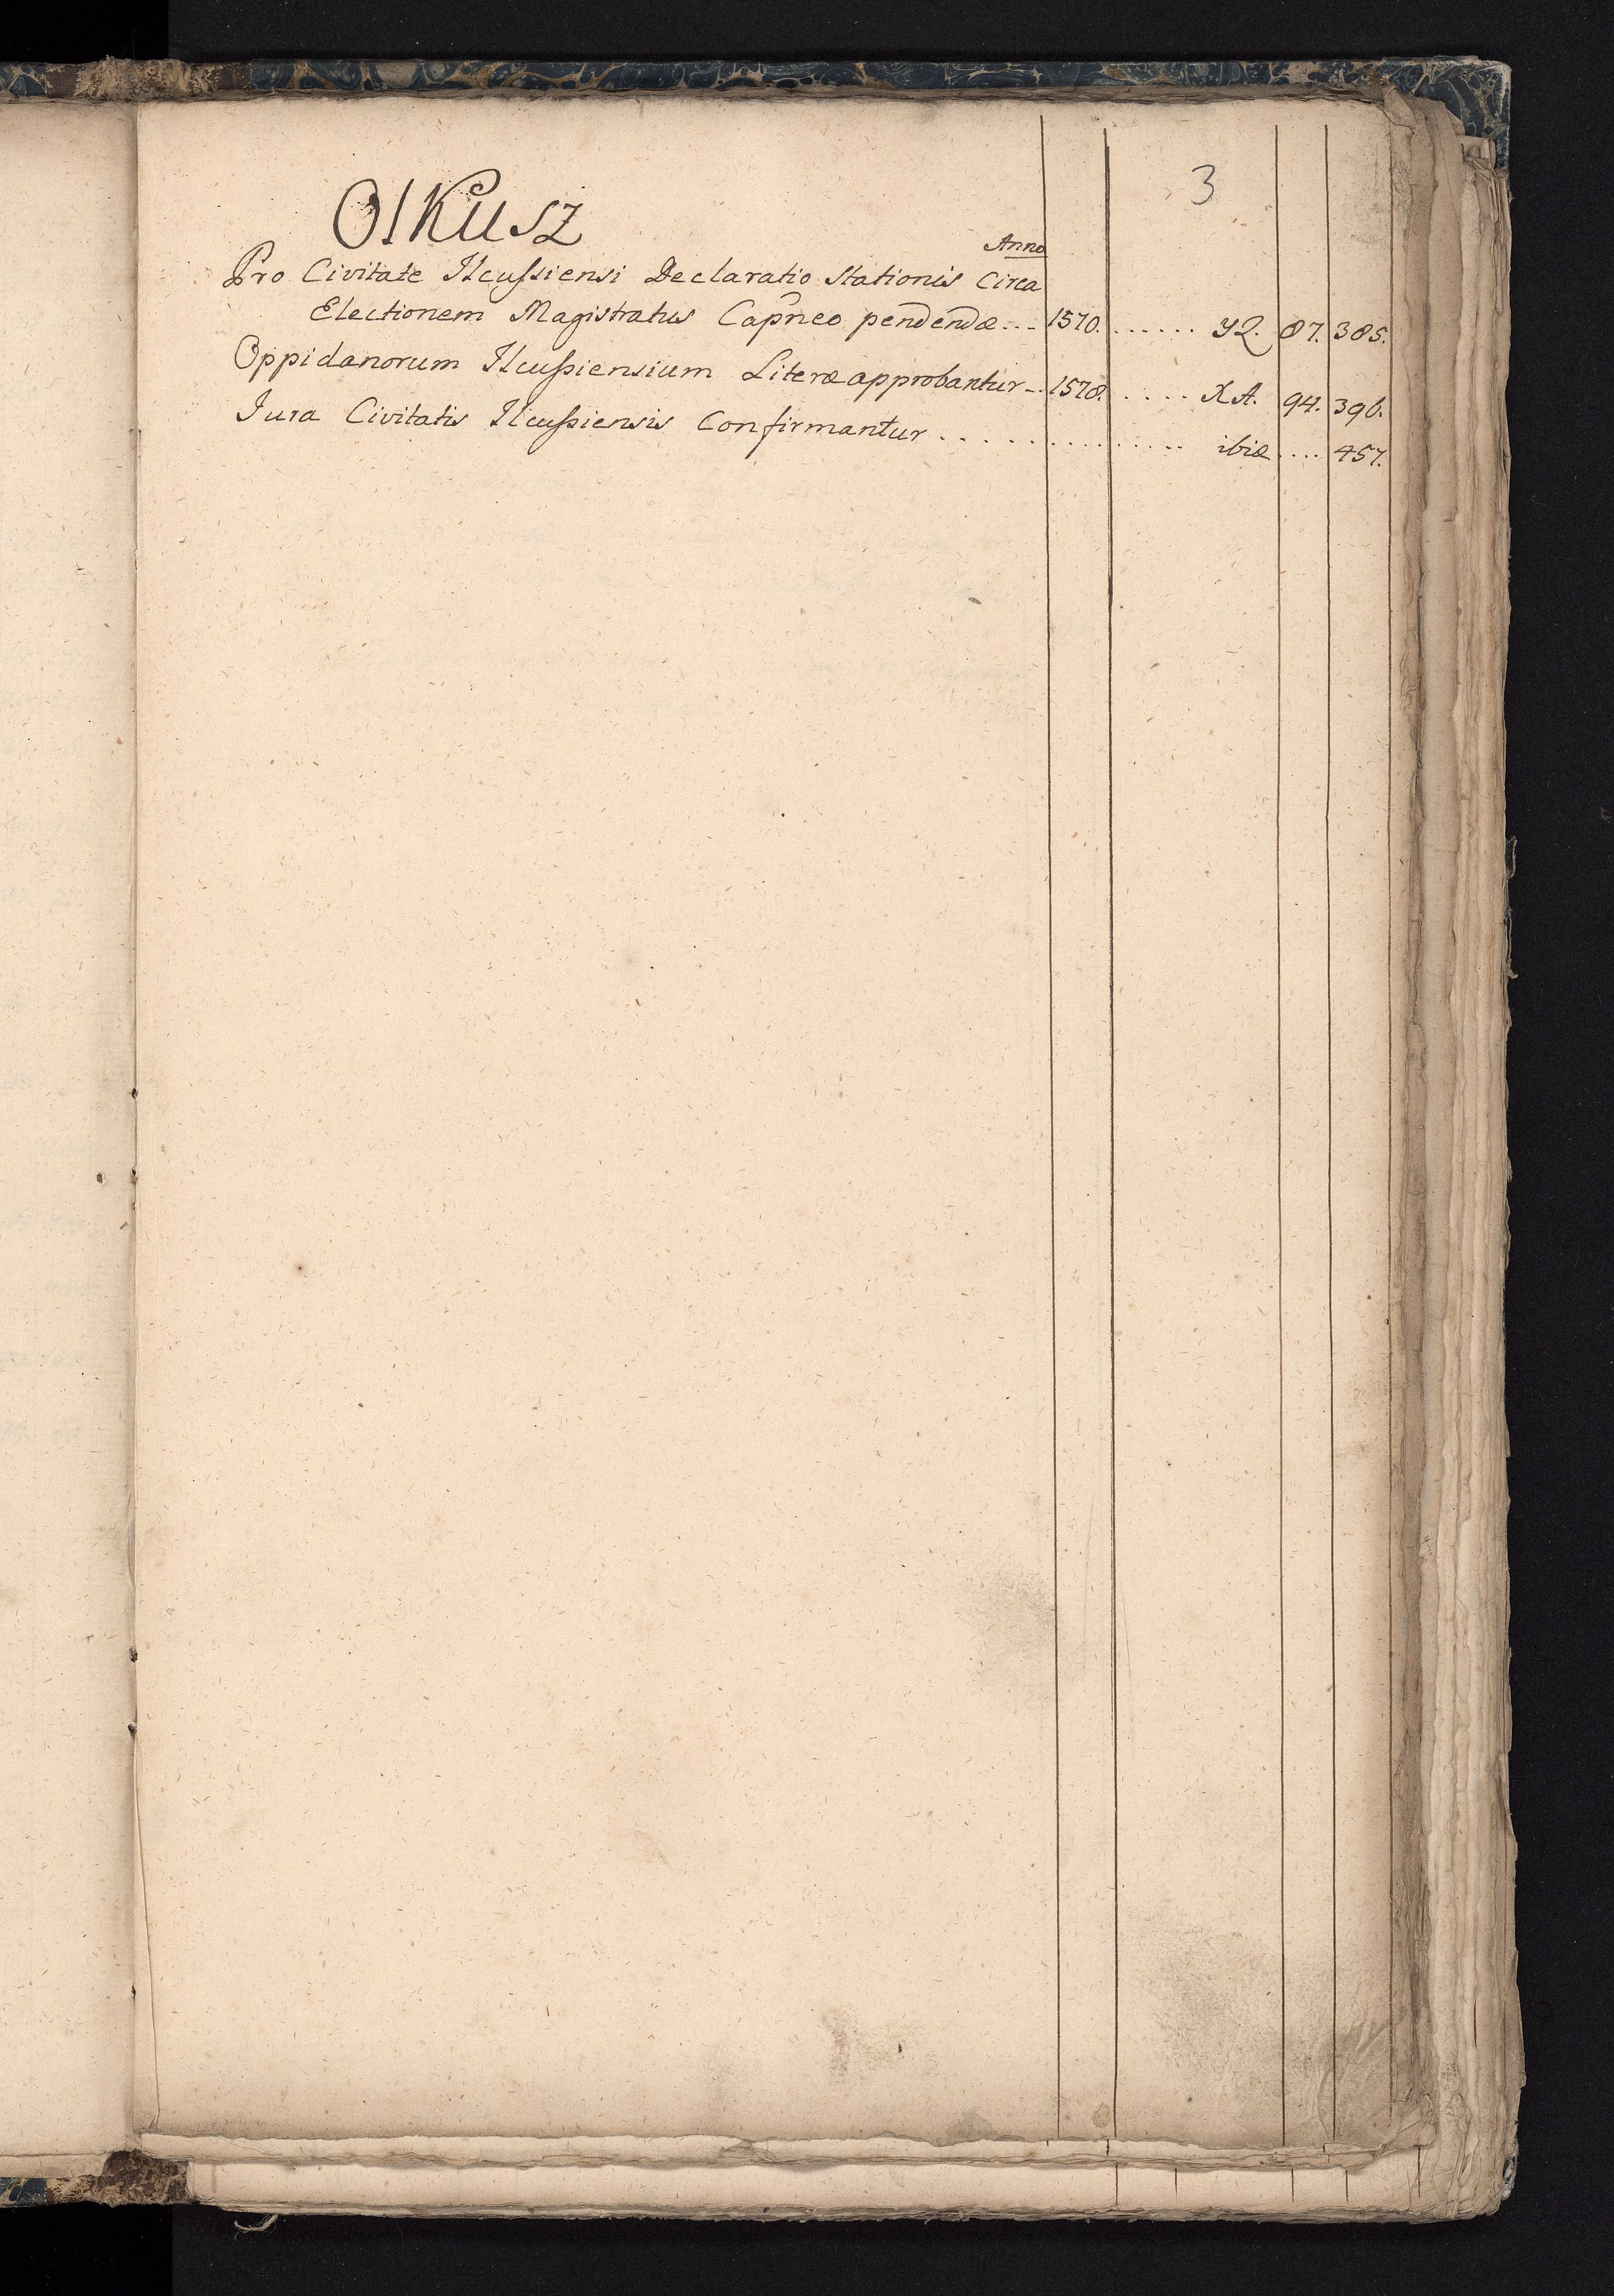 3
Olkusz
Anno
Pro Civitate Ilcussiensi Declaratio Stationis Circa
Electionem Magistratus Capneo pendendæ... 1570. ...... YQ. 87. 385.
Oppidanorum Ilcussiensium Literæ approbantur.. 1578. .... XA. 94. 396.
Jura Civitatis Ilcussiensis Confirmantur ............... ibid .... 457.